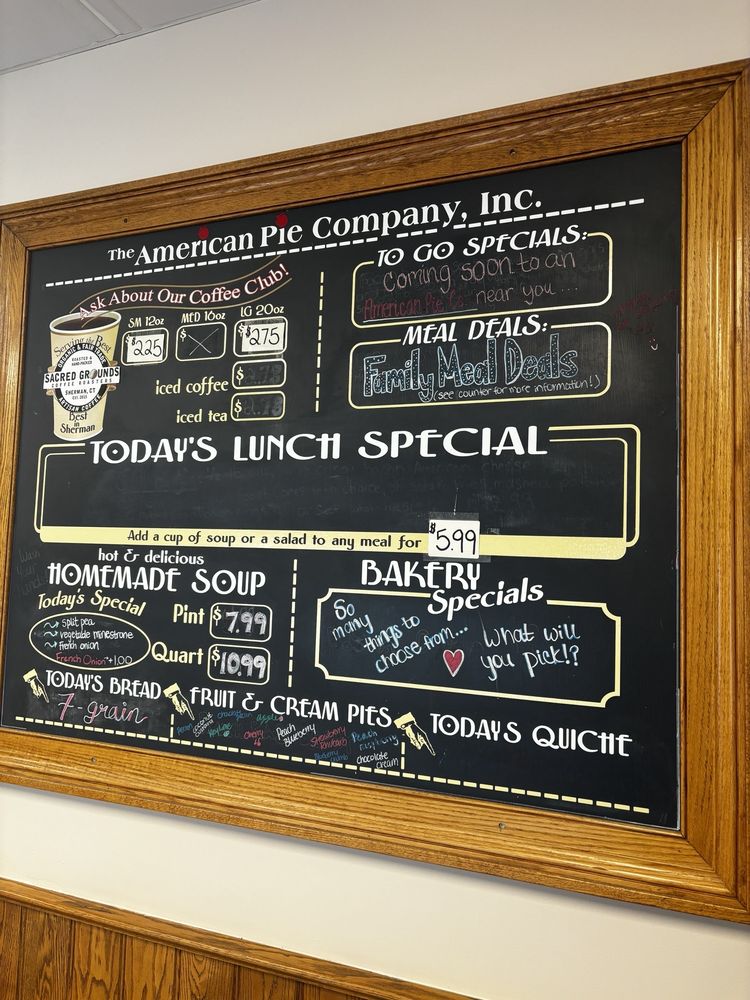 The American Pie Company, Inc.
Ask About Our Coffee Club!
SM 12oz MED 16oz LG 20oz
$2.25 $2.75
iced coffee $
iced tea $
Serving the Best
ORGANIC & FAIR TRADE
ROASTED & HAND-PACKED
SACRED GROUNDS
COFFEE ROASTERS
SHERMAN, CT
ARTISAN COFFEE
Best
in
Sherman
TO GO SPECIALS:
Coming soon to an
American Pie Co. near you ....
MEAL DEALS:
Family Meal Deals
(see counter for more information!)
TODAY'S LUNCH SPECIAL
Add a cup of soup or a salad to any meal for $5.99
hot & delicious
HOMEMADE SOUP
Today's Special
split pea
vegetable minestrone
french onion
French Onion +1.00
Pint $7.99
Quart $10.99
BAKERY
Specials
So
many
things to
choose from...
What will
you pick!?
TODAY'S BREAD
7-grain
FRUIT & CREAM PIES
Pecan
coconut
apple
Cherry
Peach
Blueberry
Strawberry
Rhubarb
chocolate
cream
TODAY'S QUICHE